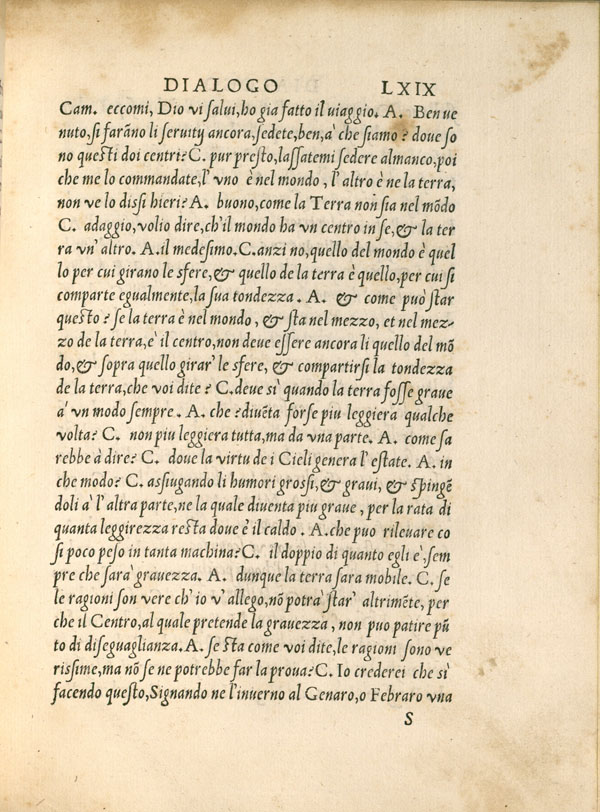 DIALOGO LXIX
Cam. eccomi, Dio vi salui, ho gia fatto il uiaggio. A. Benue
nuto, si farāno li seruity ancora, sedete, ben, a' che siamo? doue so
no questi doi centri? C. pur presto, lassatemi sedere almanco, poi
che me lo commandate, l' vno è nel mondo, l' altro è ne la terra,
non ve lo dissi hieri? A. buono, come la Terra non sia nel mōdo
C. adaggio, volio dire, ch'il mondo ha vn centro in se, & la ter
ra vn' altro. A. il medesimo. C. anzi no, quello del mondo è quel
lo per cui girano le sfere, & quello de la terra è quello, per cui si
comparte egualmente, la sua tondezza. A. & come può star
questo? se la terra è nel mondo, & sta nel mezzo, et nel mez-
zo de la terra, e' il centro, non deue essere ancora li quello del mō
do, & sopra quello girar' le sfere, & compartirsi la tondezza
de la terra, che voi dite? C. deue sì quando la terra fosse graue
a' vn modo sempre. A. che? diuēta forse piu leggiera qualche
volta? C. non piu leggiera tutta, ma da vna parte. A. come sa
rebbe à dire? C. doue la virtu de i Cieli genera l' estate. A. in
che modo? C. assiugando li humori grossi, & graui, & spingē
doli a' l' altra parte, ne la quale diuenta piu graue, per la rata di
quanta leggirezza resta doue è il caldo. A. che puo rileuare co
si poco peso in tanta machina? C. il doppio di quanto egli e', sem
pre che sara' grauezza. A. dunque la terra sara mobile. C. se
le ragioni son vere ch' io v' allego, nō potra' star' altrimēte, per
che il Centro, al quale pretende la grauezza, non puo patire pū
to di diseguaglianza. A. se sta come voi dite, le ragioni sono ve
rissime, ma nō se ne potrebbe far la proua? C. Io crederei che sì
facendo questo, Signando ne l'inuerno al Genaro, o Febraro vna
S